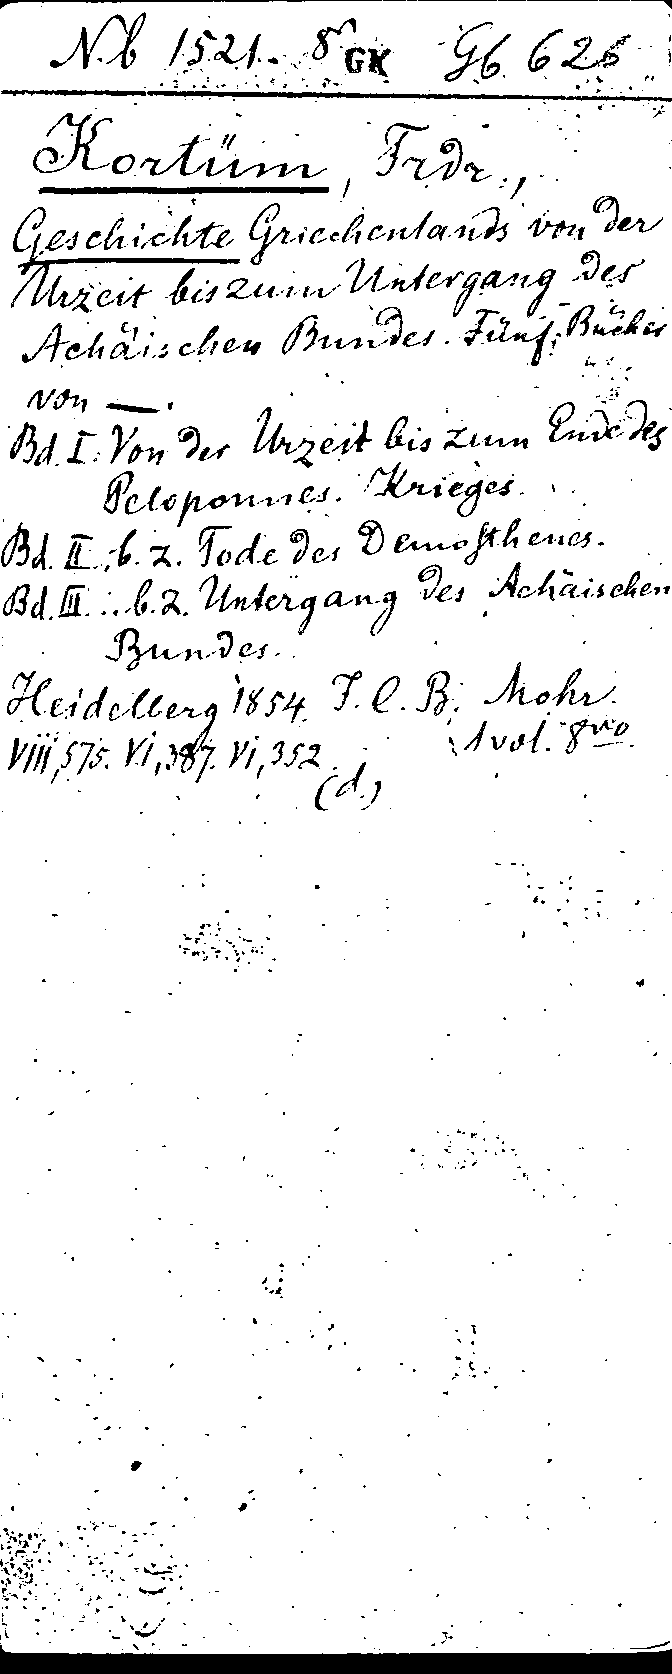 N.b 1521. 8º GK Gb 626
Kortüm, Frdr.,
Geschichte Griechenlands von der
Urzeit bis zum Untergang des
Achäischen Bundes. Fünf Bücher
von —.
Bd. I. Von der Urzeit bis zum Ende des
Peloponnes. Krieges.
Bd. II. b. z. Tode des Demosthenes.
Bd. III... b. z. Untergang des Achäischen
Bundes.
Heidelberg 1854. J. C. B. Mohr.
VIII, 575. VI, 387. VI, 352. 1 vol. 8vo.
(d.)